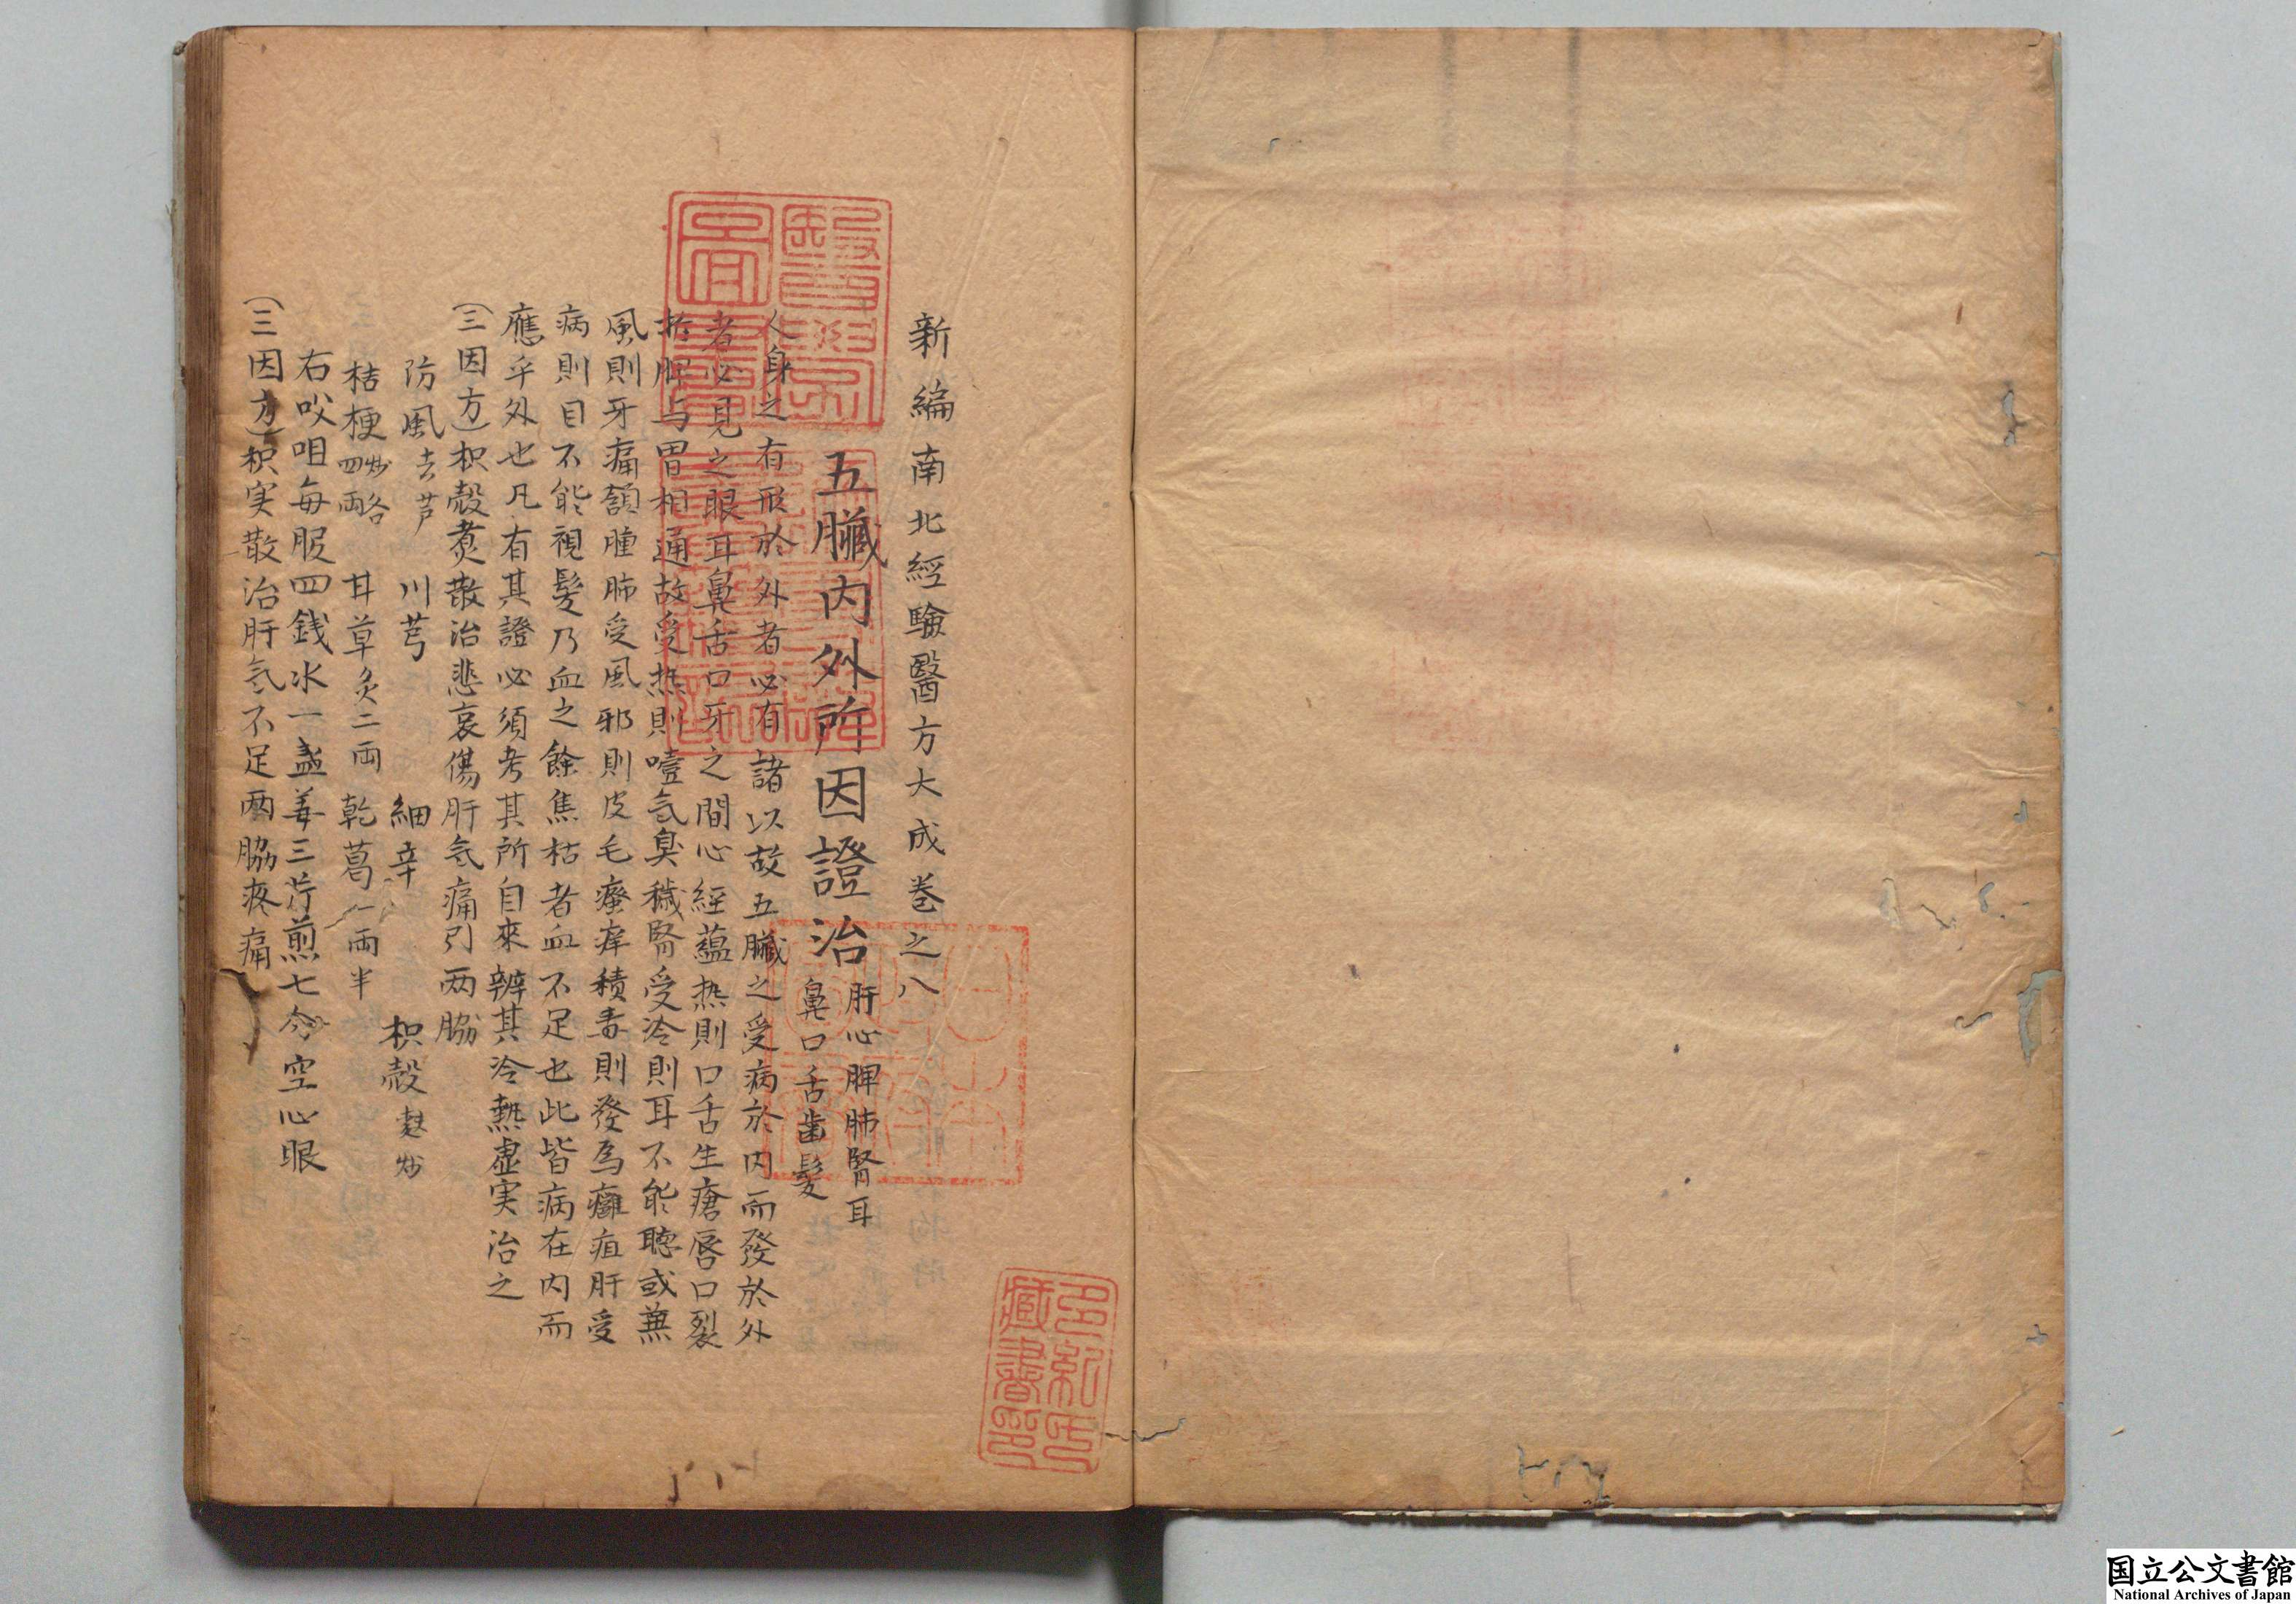 新編南北經驗醫方大成卷之八
五臟内外所因證治
肝心脾肺腎耳
鼻口舌歯髪
人身之有形於外者必有諸以故五臟之受病於内而發於外
者必見之眼耳鼻舌口牙之間心經蘊热則口舌生瘡唇口裂
拆脾与胃相通故受热則噎气臭穢腎受冷則耳不能聴或無
風則牙痛頷腫肺受風邪則皮毛癢痒積毒則發為癰疽肝受
病則目不能視髪乃血之餘焦枯者血不足也此皆病在内而
應乎外也凡有其證必須考其所自來辨其冷熱虚実治之
(三因方)枳殻煮散治悲哀傷肝气痛引两脇
防風去芦 川芎 細辛 枳殻麸炒
桔梗炒略四两 甘草炙二両 乾葛一両半
右㕮咀每服四銭水一盏姜三片煎七分空心眼
(三因方)枳実散治肝气不足両脇疼痛
醫學圖書
多紀氏藏書印
国立公文書館
National Archives of Japan